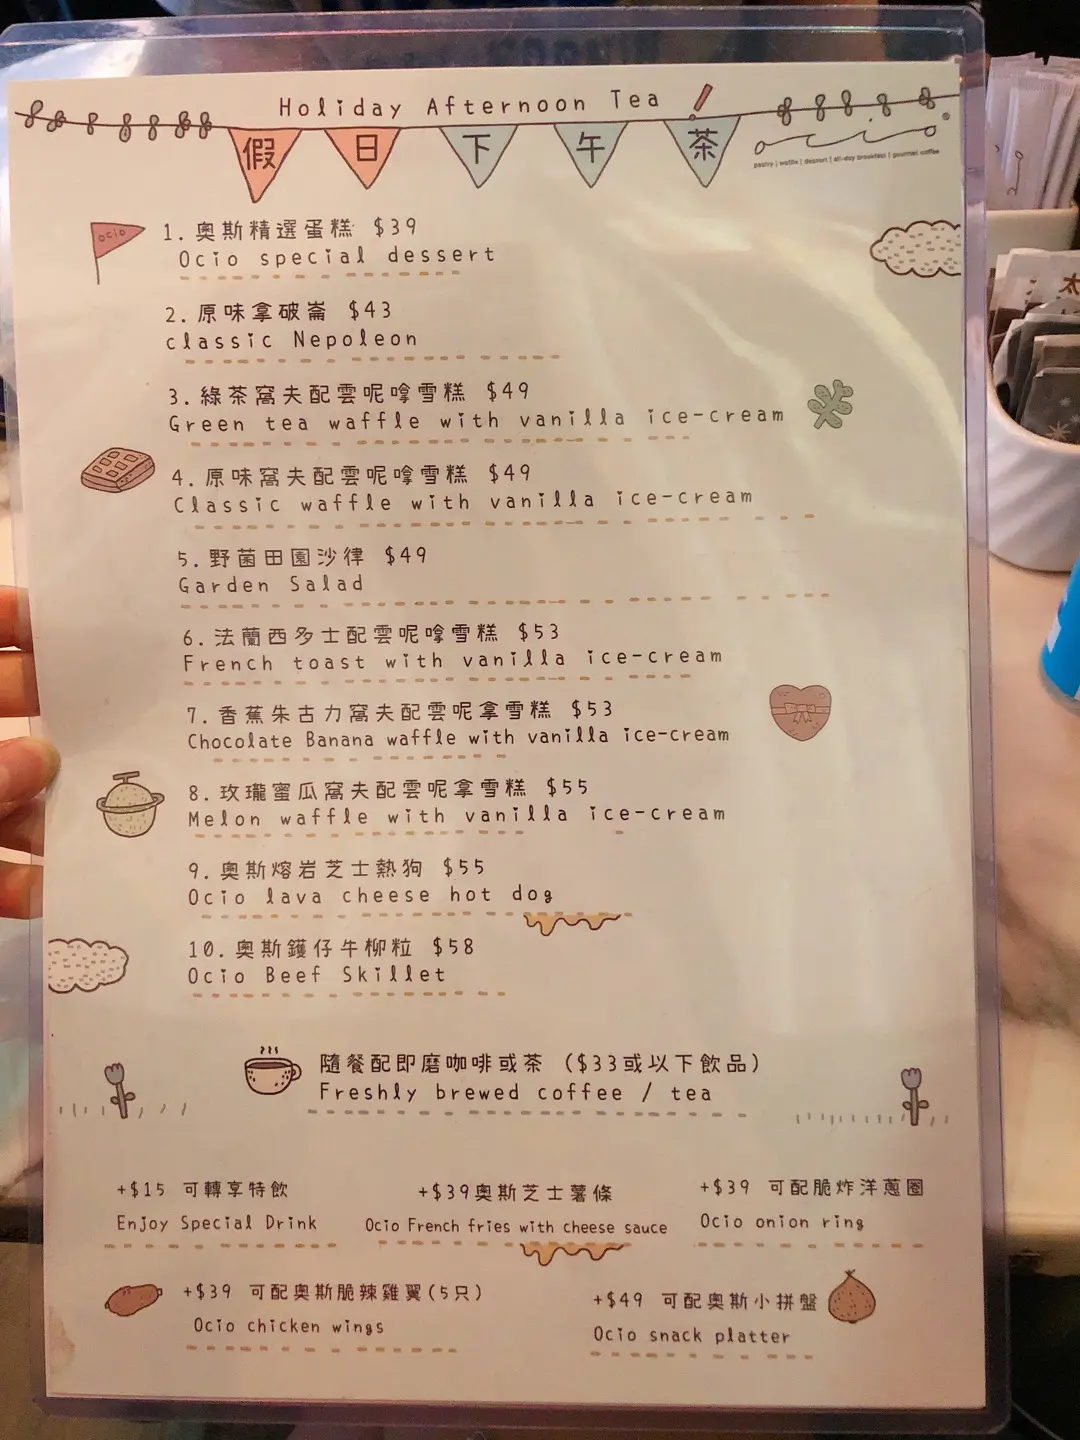 Holiday Afternoon Tea
假日下午茶
ocio
pastry | waffle | dessert | all-day breakfast | gourmet coffee
ocio
1. 奧斯精選蛋糕 $39
Ocio special dessert
2. 原味拿破崙 $43
classic Nepoleon
3. 綠茶窩夫配雲呢嗱雪糕 $49
Green tea waffle with vanilla ice-cream
4. 原味窩夫配雲呢嗱雪糕 $49
Classic waffle with vanilla ice-cream
5. 野菌田園沙律 $49
Garden Salad
6. 法蘭西多士配雲呢嗱雪糕 $53
French toast with vanilla ice-cream
7. 香蕉朱古力窩夫配雲呢拿雪糕 $53
Chocolate Banana waffle with vanilla ice-cream
8. 玫瓏蜜瓜窩夫配雲呢拿雪糕 $55
Melon waffle with vanilla ice-cream
9. 奧斯熔岩芝士熱狗 $55
Ocio lava cheese hot dog
10. 奧斯鑊仔牛柳粒 $58
Ocio Beef Skillet
隨餐配即磨咖啡或茶 ($33或以下飲品)
Freshly brewed coffee / tea
+$15 可轉享特飲
Enjoy Special Drink
+$39奧斯芝士薯條
Ocio French fries with cheese sauce
+$39 可配脆炸洋蔥圈
Ocio onion ring
+$39 可配奧斯脆辣雞翼(5只)
Ocio chicken wings
+$49 可配奧斯小拼盤
Ocio snack platter